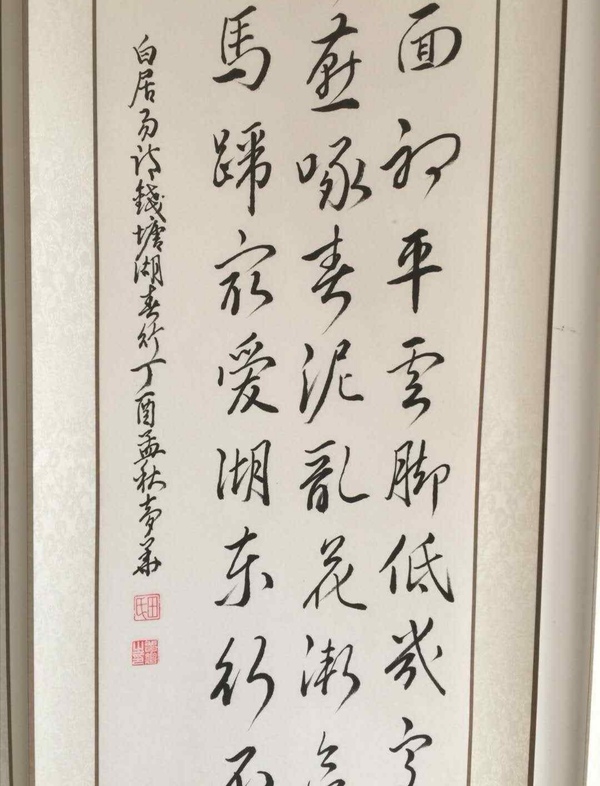 面初平雲脚低幾
燕啄春泥亂花漸
馬蹄最愛湖東行不
白居易詩錢塘湖春行丁酉孟秋
田氏